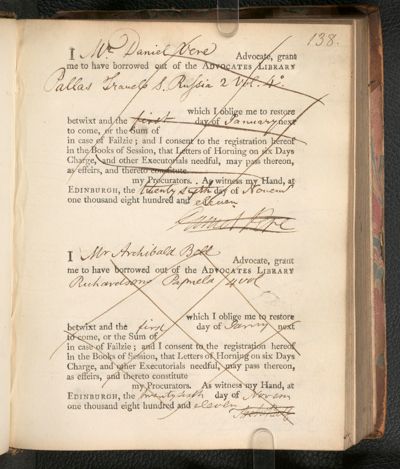 138.
I Mr. Daniel Vere Advocate, grant
me to have borrowed out of the ADVOCATES LIBRARY
Pallas Travels S. Russia 2 Vol. 4o.
which I oblige me to restore
betwixt and the first day of January next
to come, or the Sum of
in case of Failzie; and I consent to the registration hereof
in the Books of Session, that Letters of Horning on six Days
Charge, and other Executorials needful, may pass thereon,
as effeirs, and thereto constitute
my Procurators. As witness my Hand, at
EDINBURGH, the twenty sixth day of Novemr
one thousand eight hundred and eleven
I Mr Archibald Bell Advocate, grant
me to have borrowed out of the ADVOCATES LIBRARY
Richardsons Pamela 4 vol
which I oblige me to restore
betwixt and the first day of Janry next
to come, or the Sum of
in case of Failzie; and I consent to the registration hereof
in the Books of Session, that Letters of Horning on six Days
Charge, and other Executorials needful, may pass thereon,
as effeirs, and thereto constitute
my Procurators. As witness my Hand, at
EDINBURGH, the twenty sixth day of Novem
one thousand eight hundred and eleven